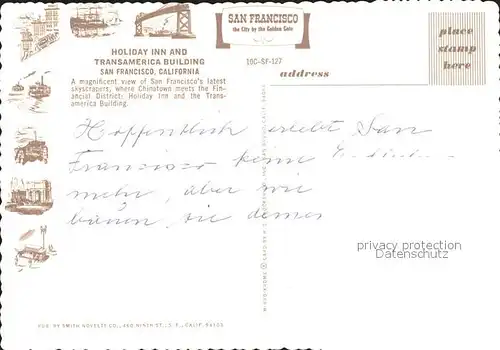 SAN FRANCISCO
the City by the Golden Gate
place
stamp
here
HOLIDAY INN AND
TRANSAMERICA BUILDING
SAN FRANCISCO, CALIFORNIA
10C-SF-127
address
A magnificent view of San Francisco's latest
skyscrapers, where Chinatown meets the Fin-
ancial District: Holiday Inn and the Trans-
america Building.
Hoffentlich erlebt San
Francisco kein
mehr, aber wir
bauen sie
privacy protection
Datenschutz
PUB. BY SMITH NOVELTY CO., 460 NINTH ST., S. F., CALIF. 94103